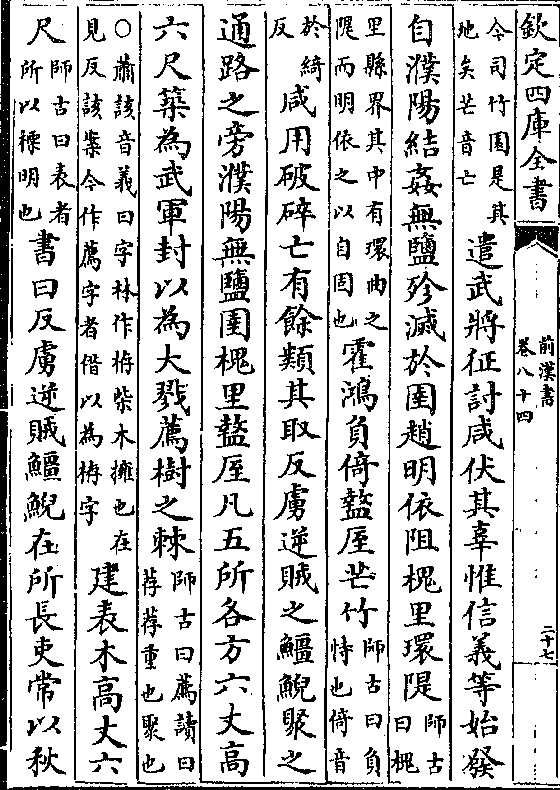 欽定四庫全書
前漢書
卷八十四
二十七
今司竹園是其
地矣芒音亡
遣武將征討咸伏其辜惟信義等始發
自濮陽結姦無鹽殄滅於圉趙明依阻槐里環隄
師古
曰槐
里縣界其中有環曲之
隄而明依之以自固也
霍鴻負倚盩厔芒竹
師古曰負
恃也倚音
於綺
反
咸用破碎亡有餘類其取反虜逆賊之鱷鯢聚之
通路之旁濮陽無鹽圉槐里盩厔凡五所各方六丈高
六尺築為武軍封以為大戮薦樹之棘
師古曰薦讀曰
荐荐重也聚也
○蕭該音義曰字林作栫柴木擁也在
見反該案今作薦字者借以為栫字
建表木高丈六
尺
師古曰表者
所以標明也
書曰反虜逆賊鱷鯢在所長吏常以秋